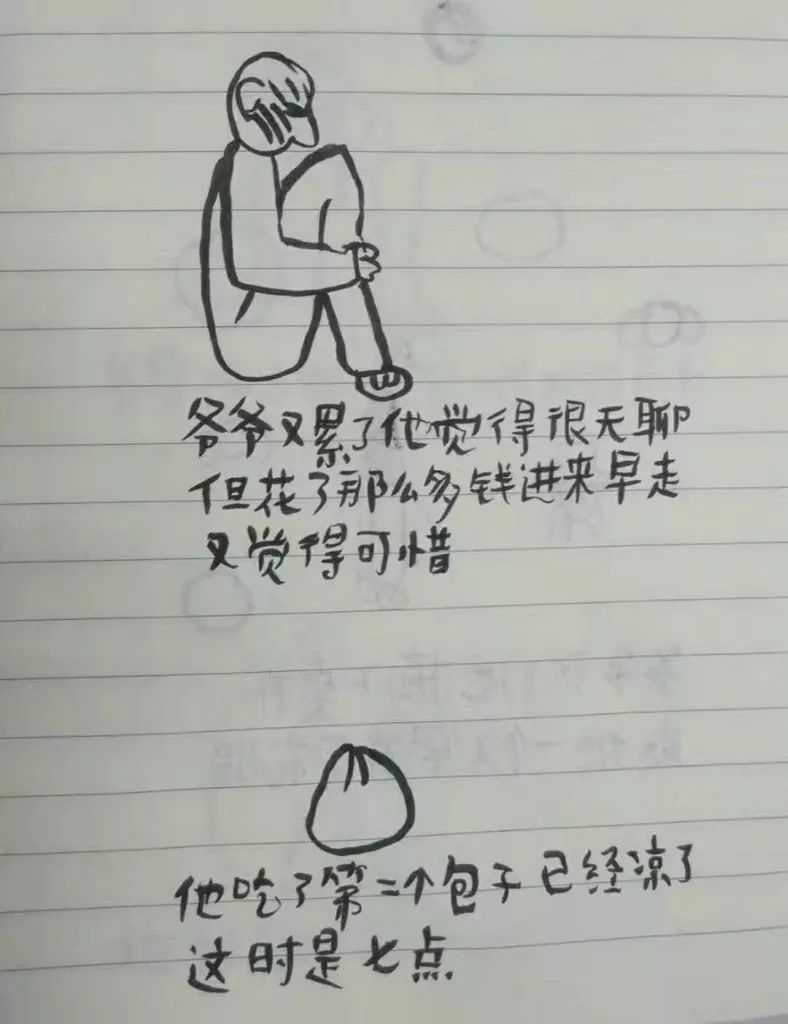 爷爷又累了他觉得很无聊
但花了那么多钱进来早走
又觉得可惜
他吃了第二个包子已经凉了
这时是七点